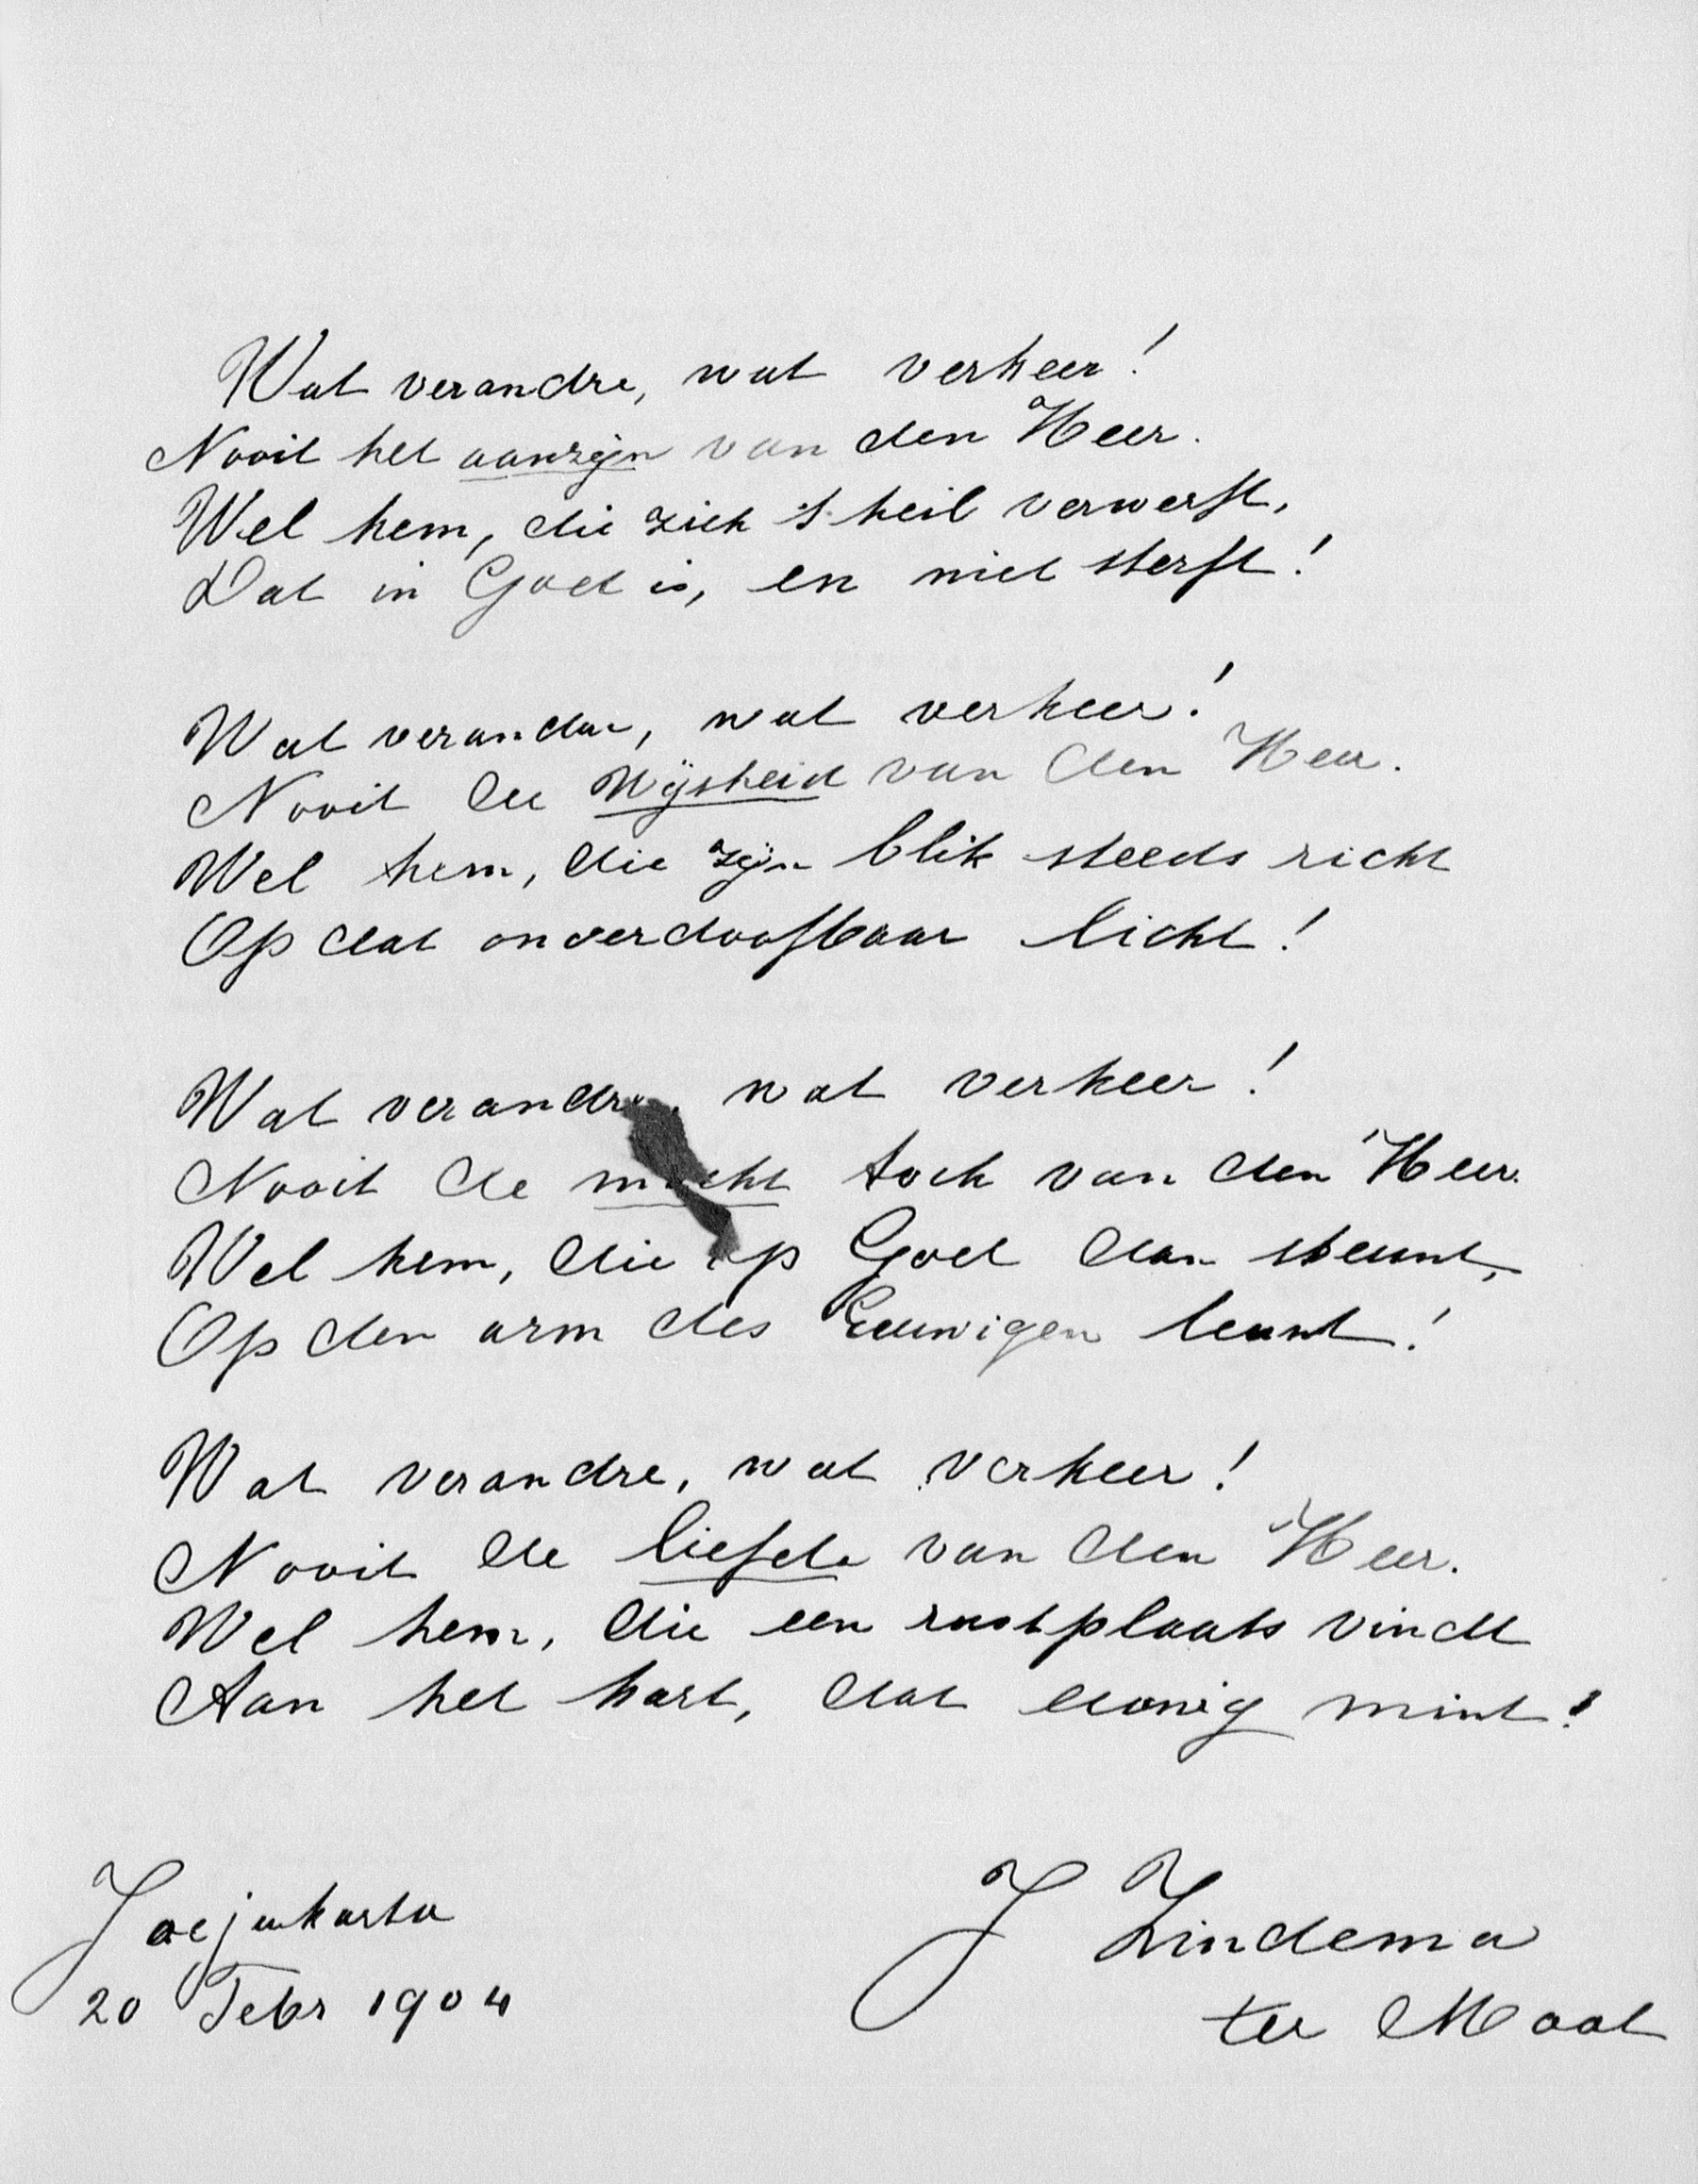 Wat verandre, wat verkeer!
Nooit het aanzijn van den Heer.
Wel hem, die zich 't heil verwerft,
Dat in God is, en niet sterft!
Wat verandre, wat verkeer!
Nooit de Wijsheid van den Heer.
Wel hem, die zijn blik steeds richt
Op dat onverdoofbaar licht!
Wat verandre, wat verkeer!
Nooit de macht toch van den Heer.
Wel hem, die op God dan steunt,
Op den arm des Eeuwigen leunt!
Wat verandre, wat verkeer!
Nooit de liefde van den Heer.
Wel hem, die een rustplaats vindt
Aan het hart, dat eeuwig mint!
Jocjakarta
20 Febr 1904
J Lindema
ter Maat